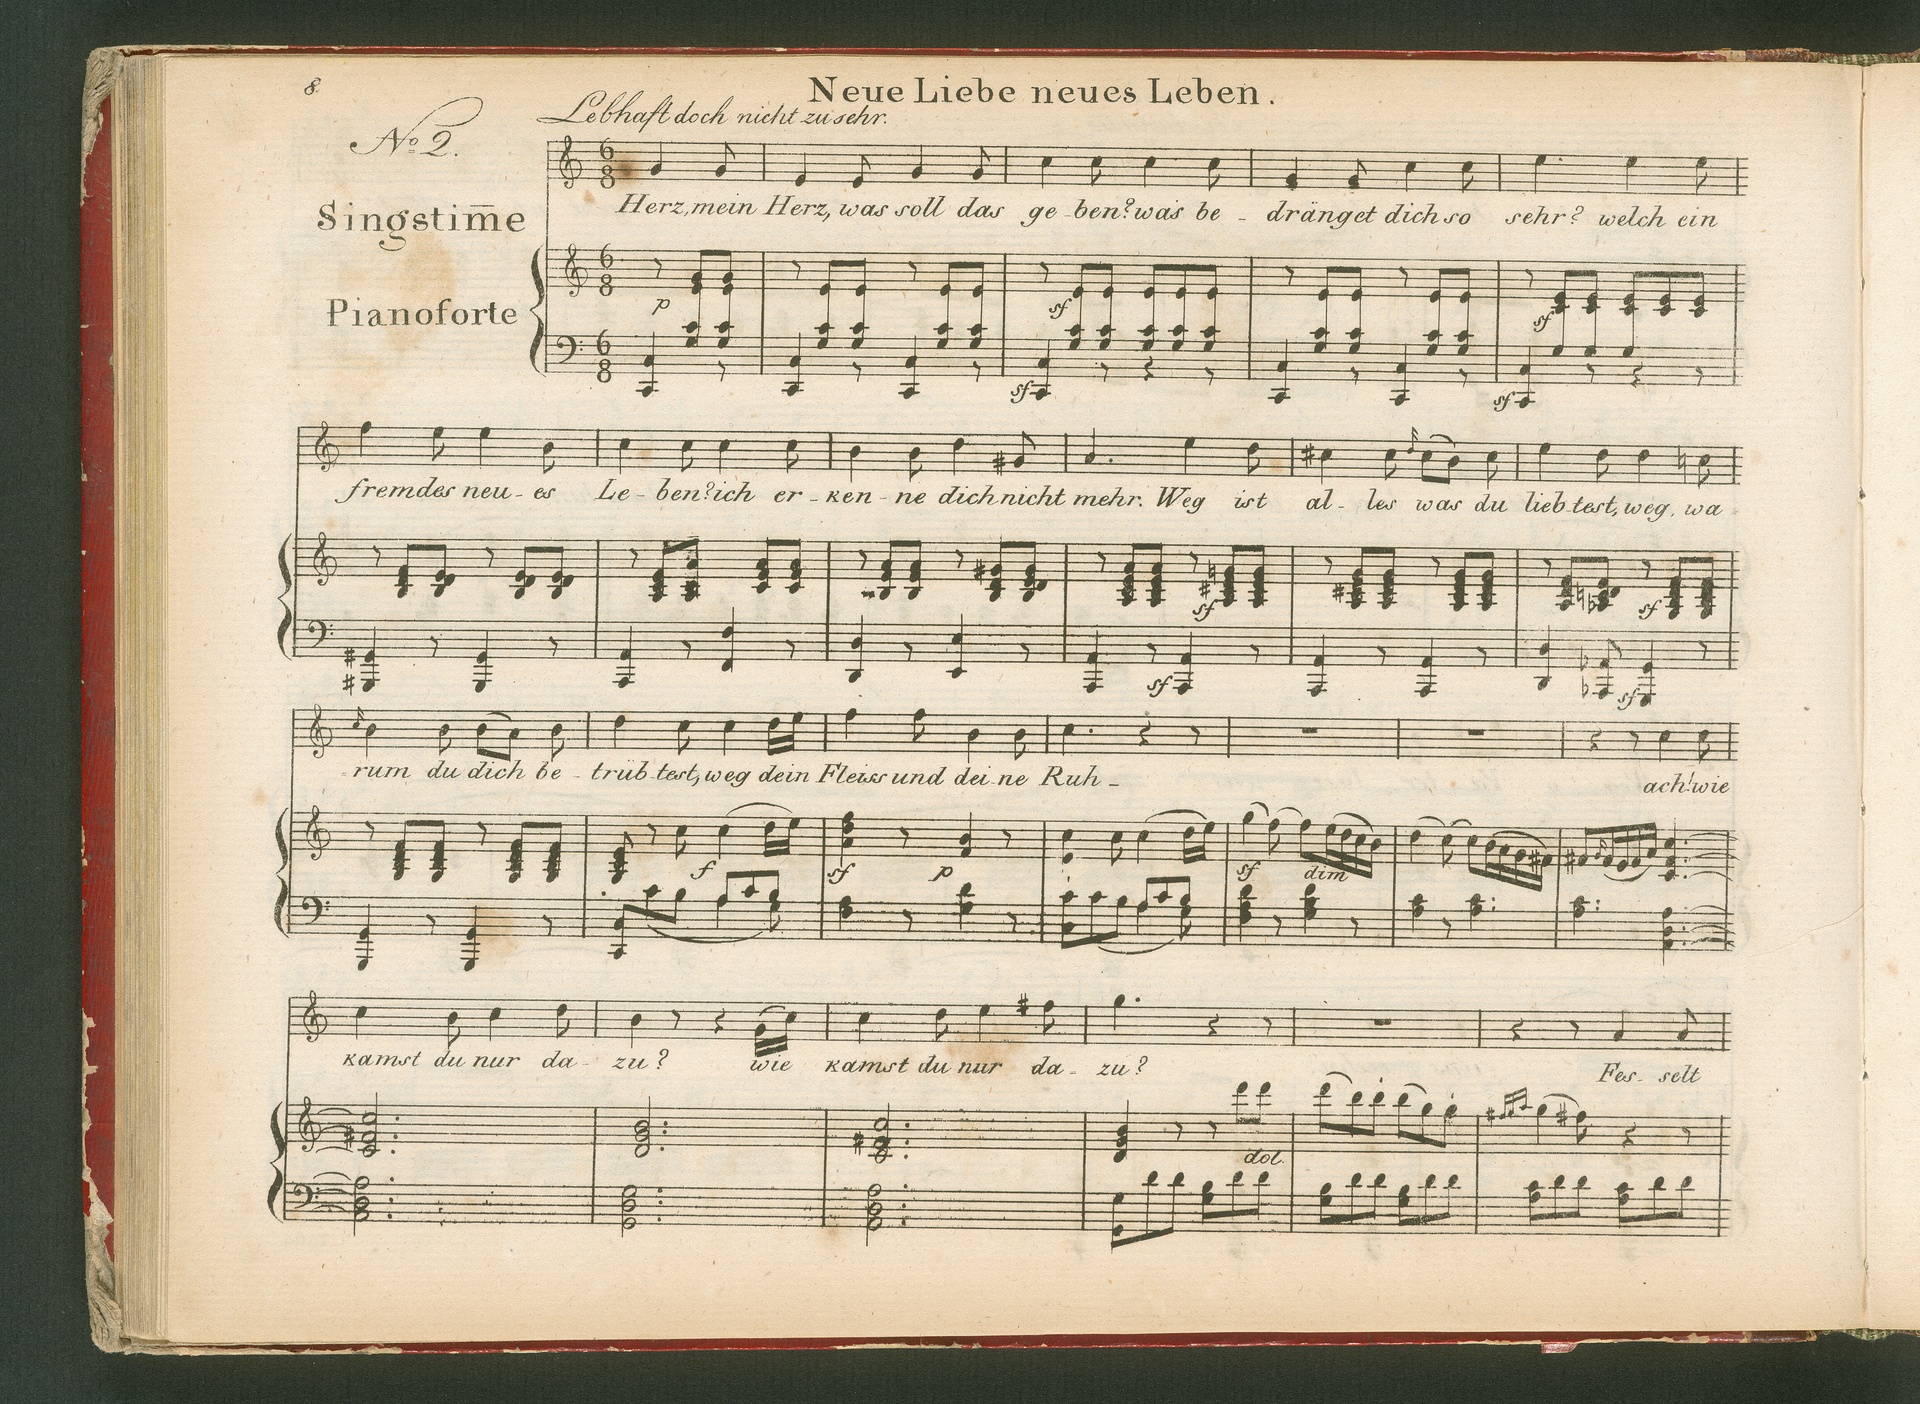 8.
Neue Liebe neues Leben.
Lebhaft doch nicht zu sehr.
No 2.
Singstim̅e
Herz, mein Herz, was soll das ge-ben? was be-dränget dich so sehr? welch ein
Pianoforte
p sf sf
sf sf
fremdes neu-es Le-ben? ich er-ken-ne dich nicht mehr. Weg ist al-les was du lieb-test, weg, wa
sf sf
sf sf
-rum du dich be-trüb-test, weg dein Fleiss und dei-ne Ruh- ach! wie
f sf p sf dim
kamst du nur da-zu? wie kamst du nur da-zu? Fes-selt
dol.